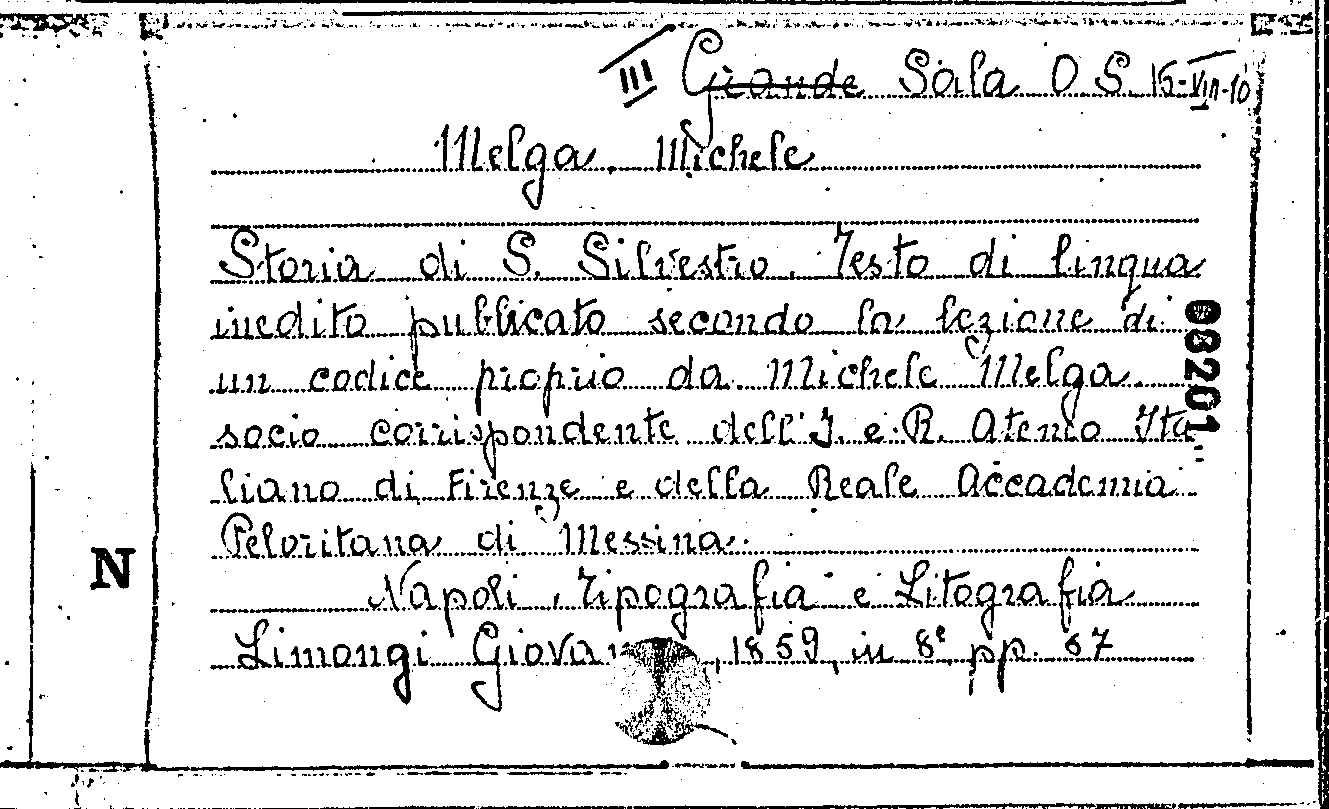 III Grande Sala O S. 15-VIII-10
Melga, Michele
Storia di S. Silvestro. Testo di lingua
inedito pubblicato secondo la lezione di
un codice proprio da Michele Melga
socio corrispondente dell'I. e R. Ateneo Ita
liano di Firenze e della Reale Accademia
Peloritana di Messina.
Napoli, Tipografia e Litografia
Limongi, 1859, in 8° pp. 67
08201
N